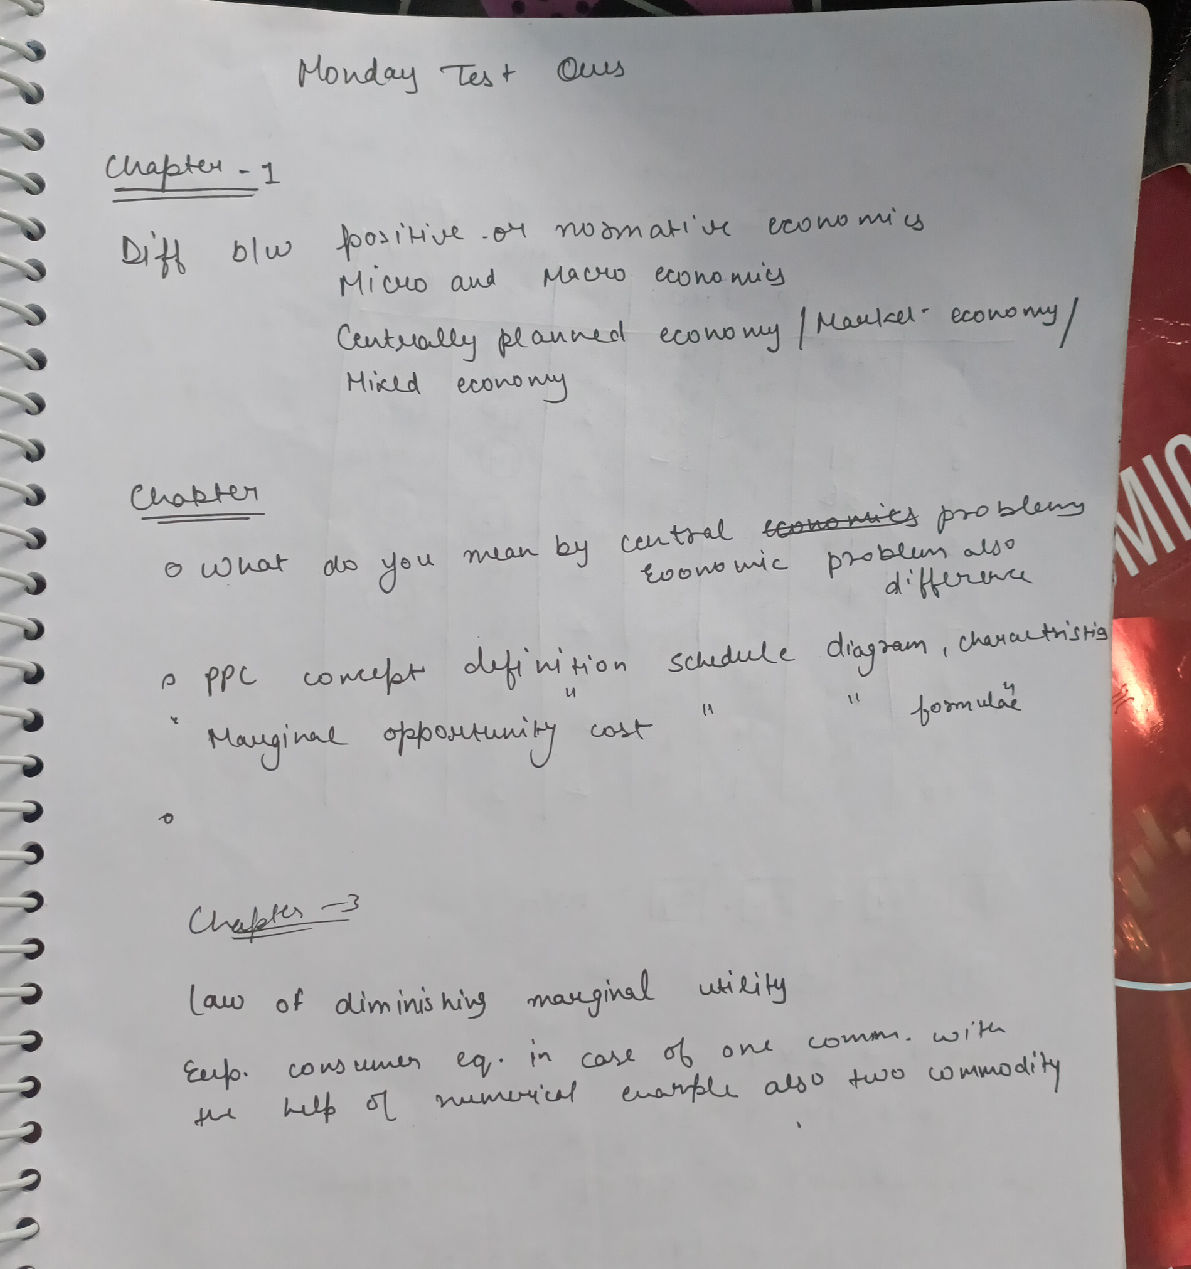 Monday Test Ques
Chapter - 1
Diff b/w positive or normative economics
Micro and Macro economics
Centrally planned economy / Market economy /
Mixed economy
Chapter
o What do you mean by central economics problems
Economic problem also
difference
o PPC concept definition schedule diagram, charactristics
" Marginal opportunity cost " " " formulae "
o
Chapter - 3
Law of diminishing marginal utility
Exp. consumer eq. in case of one comm. with
the help of numerical example also two commodity
MIC